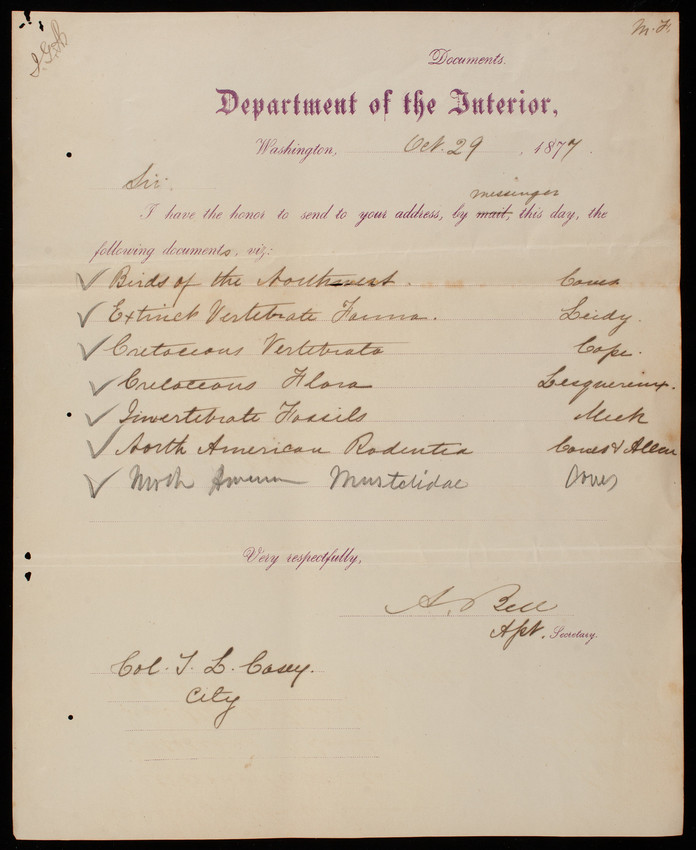 M. F.
Documents.
Department of the Interior,
Washington, Oct. 29, 1877.
Sir:
messinger
I have the honor to send to your address, by mail, this day, the
following documents, viz:
Birds of the Northwest. Coues
Extinct Vertebrate Fauna. Leidy.
Cretaceous Vertebrata Cope.
Cretaceous Flora Lesquereux.
Invertebrate Fossils Meek
North American Rodentia Coues & Allen
North American Mustelidae Coues
Very respectfully,
A. Bell
Asst. Secretary.
Col. T. L. Casey.
City